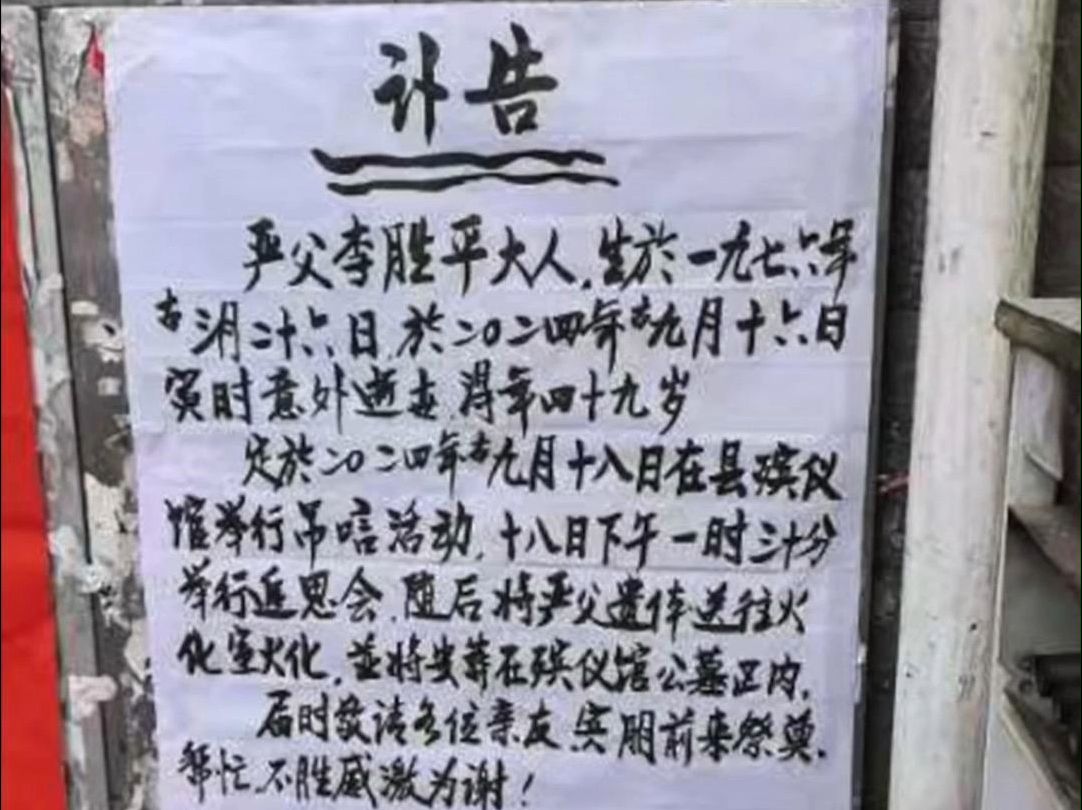 讣告
严父李胜平大人,生於一九七六年
古三月二十六日,於二〇二四年古九月十六日
寅时意外逝世,得年四十九岁
定於二〇二四年古九月十八日在县殡仪
馆举行吊唁活动,十八日下午一时三十分
举行追思会,随后将严父遗体送往火
化室火化,並将安葬在殡仪馆公墓区内,
届时敬请各位亲友、宾朋前来祭奠,
帮忙,不胜感激为谢!